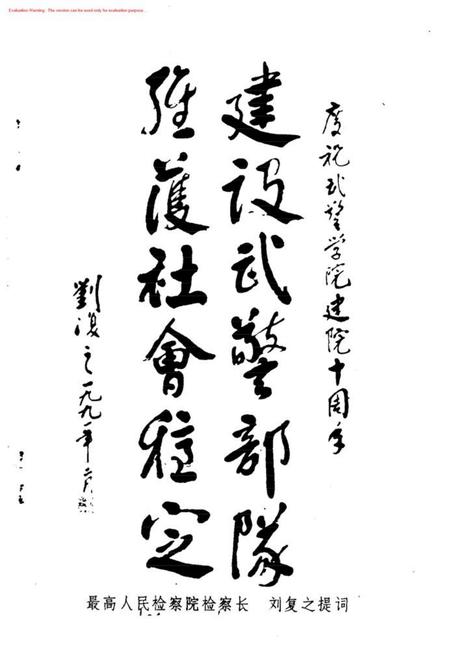 Evaluation Warning : The version can be used only for evaluation purpose...
庆祝武警学院建院十周年
建设武警部隊
維護社會穩定
劉復之一九九一年二月
最高人民检察院检察长 刘复之提词